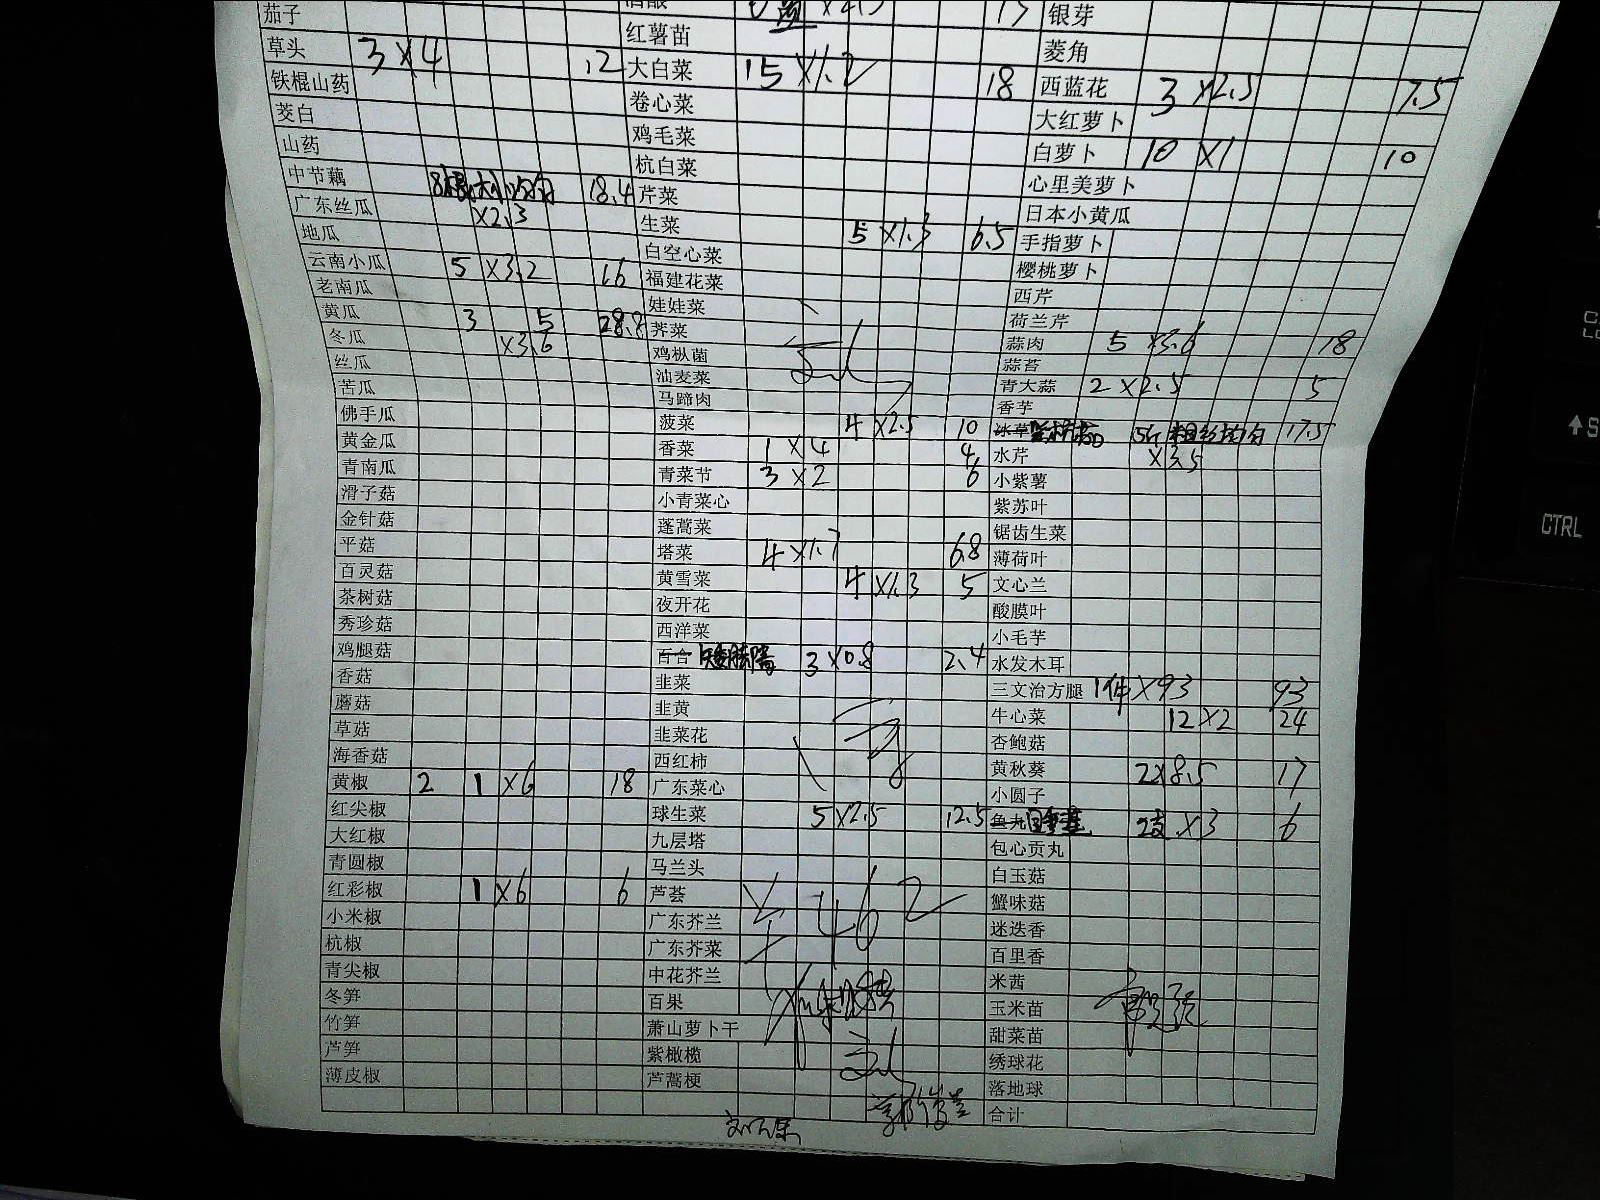 茄子
草头 3 ×4 12
铁棍山药
茭白
山药
中节藕 18.4
广东丝瓜 ×2.3
地瓜
云南小瓜 5 ×3.2 16
老南瓜
黄瓜 3 5 28.8
冬瓜 ×3.6
丝瓜
苦瓜
佛手瓜
黄金瓜
青南瓜
滑子菇
金针菇
平菇
百灵菇
茶树菇
秀珍菇
鸡腿菇
香菇
蘑菇
草菇
海香菇
黄椒 2 1 ×6 18
红尖椒
大红椒
青圆椒
红彩椒 1 ×6 6
小米椒
杭椒
青尖椒
冬笋
竹笋
芦笋
薄皮椒
红薯苗
大白菜 15 ×1.2 18
卷心菜
鸡毛菜
杭白菜
芹菜
生菜 5 ×1.3 6.5
白空心菜
福建花菜
娃娃菜
荠菜
鸡枞菌
油麦菜
马蹄肉
菠菜 4 ×2.5 10
香菜 1 ×4 4
青菜节 3 ×2 6
小青菜心
蓬蒿菜
塔菜 4 ×1.7 6.8
黄雪菜 4 ×1.3 5
夜开花
西洋菜
百合 3 ×0.8 2.4
韭菜
韭黄
韭菜花
西红柿
广东菜心
球生菜 5 ×2.5 12.5
九层塔
马兰头
芦荟
广东芥兰 462
广东芥菜
中花芥兰
百果
萧山萝卜干
紫橄榄
芦蒿梗
银芽
菱角
西蓝花 3 ×2.5 7.5
大红萝卜
白萝卜 10 ×1 10
心里美萝卜
日本小黄瓜
手指萝卜
樱桃萝卜
西芹
荷兰芹
蒜肉 5 ×3.6 18
蒜苔
青大蒜 2 ×2.5 5
香芋
冰草 17.5
水芹 ×3.5
小紫薯
紫苏叶
锯齿生菜
薄荷叶
文心兰
酸膜叶
小毛芋
水发木耳
三文治方腿 1件 ×93 93
牛心菜 12 ×2 24
杏鲍菇
黄秋葵 2×8.5 17
小圆子
鱼丸 2支 ×3 6
包心贡丸
白玉菇
蟹味菇
迷迭香
百里香
米茜
玉米苗
甜菜苗
绣球花
落地球
合计
CTRL